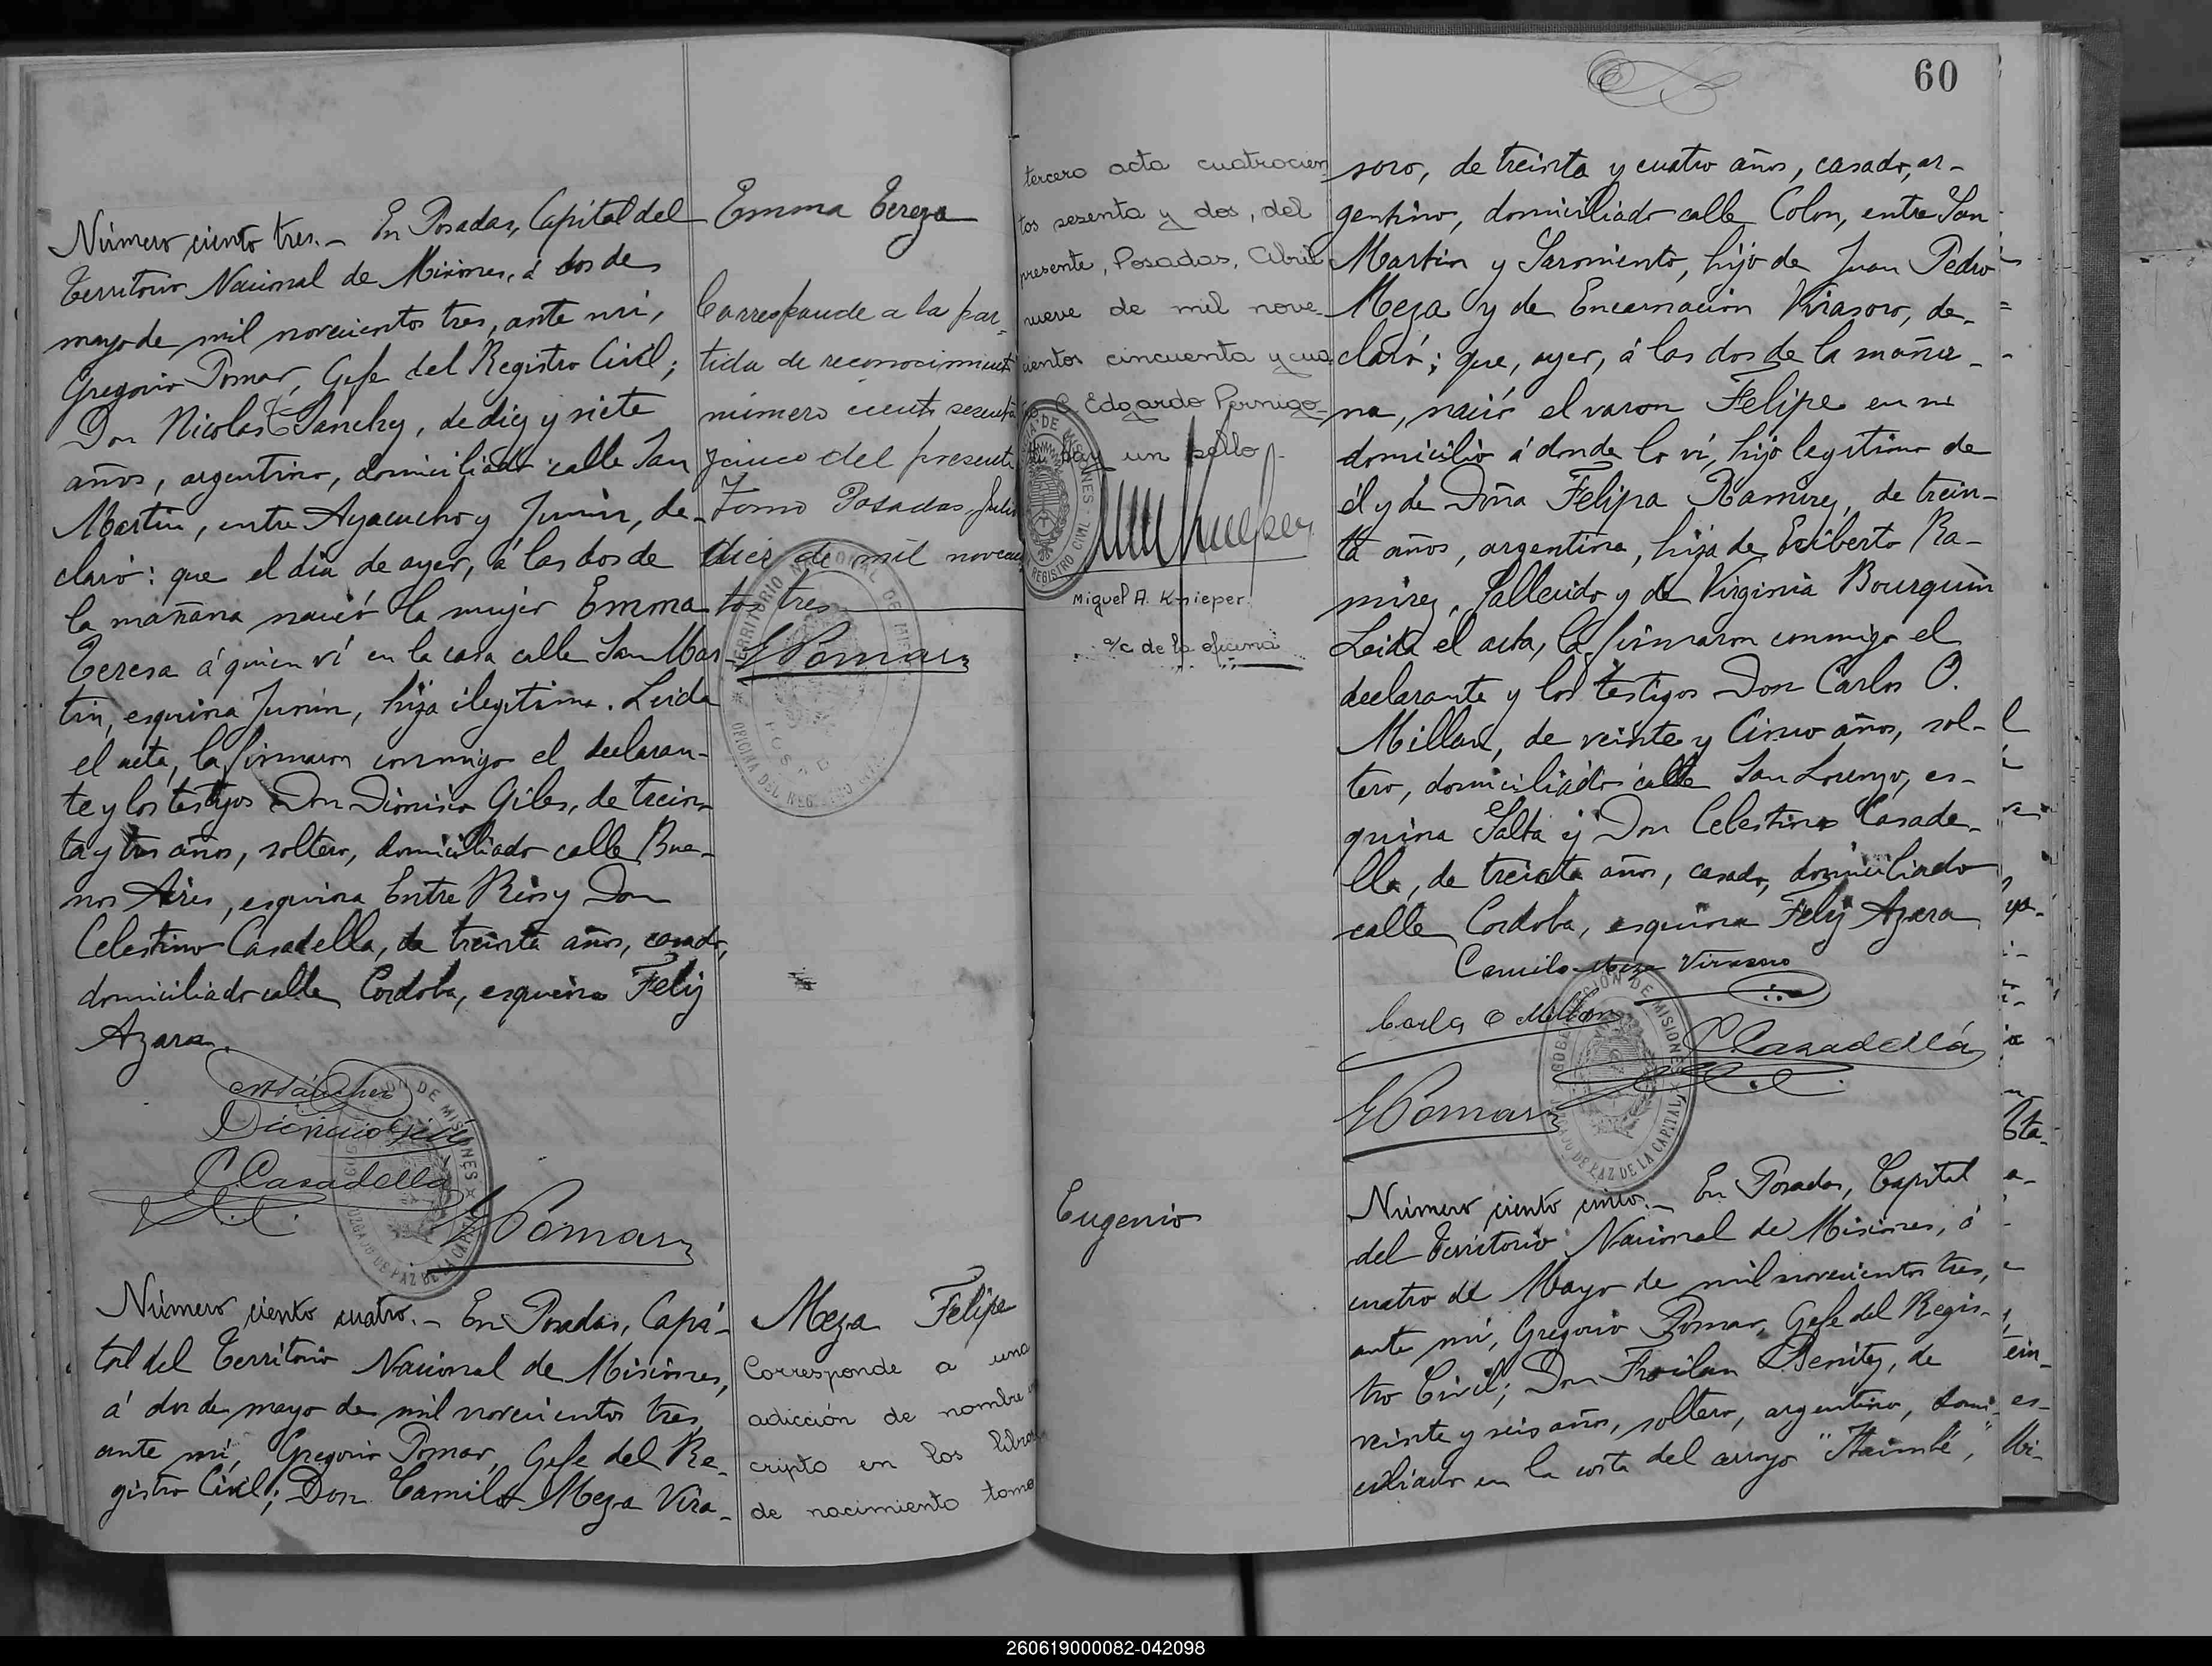 Número ciento tres.- En Posadas, Capital del
Territorio Nacional de Misiones, á dos de
mayo de mil novecientos tres, ante mí,
Gregorio Pomar, Gefe del Registro Civil;
Don Nicolas Sanchez, de diez y siete
años, argentino, domiciliado calle San
Martin, entre Ayacucho y Junin, de-
claró: que el dia de ayer, á las dos de
la mañana nació la mujer Emma
Teresa á quien ví en la casa calle San Mar-
tin, esquina Junin, hija ilegitima. Leida
el acta, la firmaron conmigo el declaran-
te y los testigos Don Dionisio Giles, de trein-
ta y tres años, soltero, domiciliado calle Bue-
nos Aires, esquina Entre Rios y Don
Celestino Casadella, de treinta años, casado,
domiciliado calle Cordoba, esquina Feliz
Azara.
NSánchez
Dionicio Giles
CCasadella
GPomar
Emma Tereza
Corresponde a la par-
tida de reconocimiento
número ciento sesenta
y cinco del presente
Tomo Posadas, Julio
diez de mil novecien
tos tres
GPomar
TERRITORIO NACIONAL DE MISIONES
OFICINA DEL REGISTRO CIVIL
POSADAS
GOBERNACION DE MISIONES
JUZGADO DE PAZ DE LA CAPITAL
Número ciento cuatro.- En Posadas, Capi-
tal del Territorio Nacional de Misiones,
á dos de mayo de mil novecientos tres,
ante mí, Gregorio Pomar, Gefe del Re-
gistro Civil; Don Camilo Meza Vira-
Meza Felipe
Corresponde a una
adicción de nombre
cripto en los libros
de nacimiento tomo
60
tercero acta cuatrocien
tos sesenta y dos, del
presente, Posadas, Abril
nueve de mil nove-
cientos cincuenta y cua
Edgardo Pernigo-
hay un sello-
Miguel A. Knieper
a/c de la oficina
REGISTRO CIVIL
soro, de treinta y cuatro años, casado, ar-
gentino, domiciliado calle Colon, entre San
Martin y Sarmiento, hijo de Juan Pedro
Meza y de Encarnación Virasoro, de-
claró: que, ayer, á las dos de la maña-
na, nació el varon Felipe en su
domicilio á donde lo ví, hijo legitimo de
él y de Doña Felipa Ramirez, de trein-
ta años, argentina, hija de Eriberto Ra-
mirez, fallecido y de Virginia Bourquin
Leida el acta, la firmaron conmigo el
declarante y los testigos Don Carlos O.
Millan, de veinte y cinco años, sol-
tero, domiciliado calle San Lorenzo, es-
quina Salta y Don Celestino Casade-
lla, de treinta años, casado, domiciliado
calle Cordoba, esquina Feliz Azara
Camilo Meza Virasoro
Carlos O Millan
CCasadella
GPomar
GOBERNACION DE MISIONES
JUZGADO DE PAZ DE LA CAPITAL
Eugenio
Número ciento cinco.- En Posadas, Capital
del Territorio Nacional de Misiones, á
cuatro de Mayo de mil novecientos tres,
ante mí, Gregorio Pomar, Gefe del Regis-
tro Civil; Don Froilan Benitez, de
veinte y seis años, soltero, argentino, domi-
ciliado en la costa del arroyo "Itaimbé",
260619000082-042098